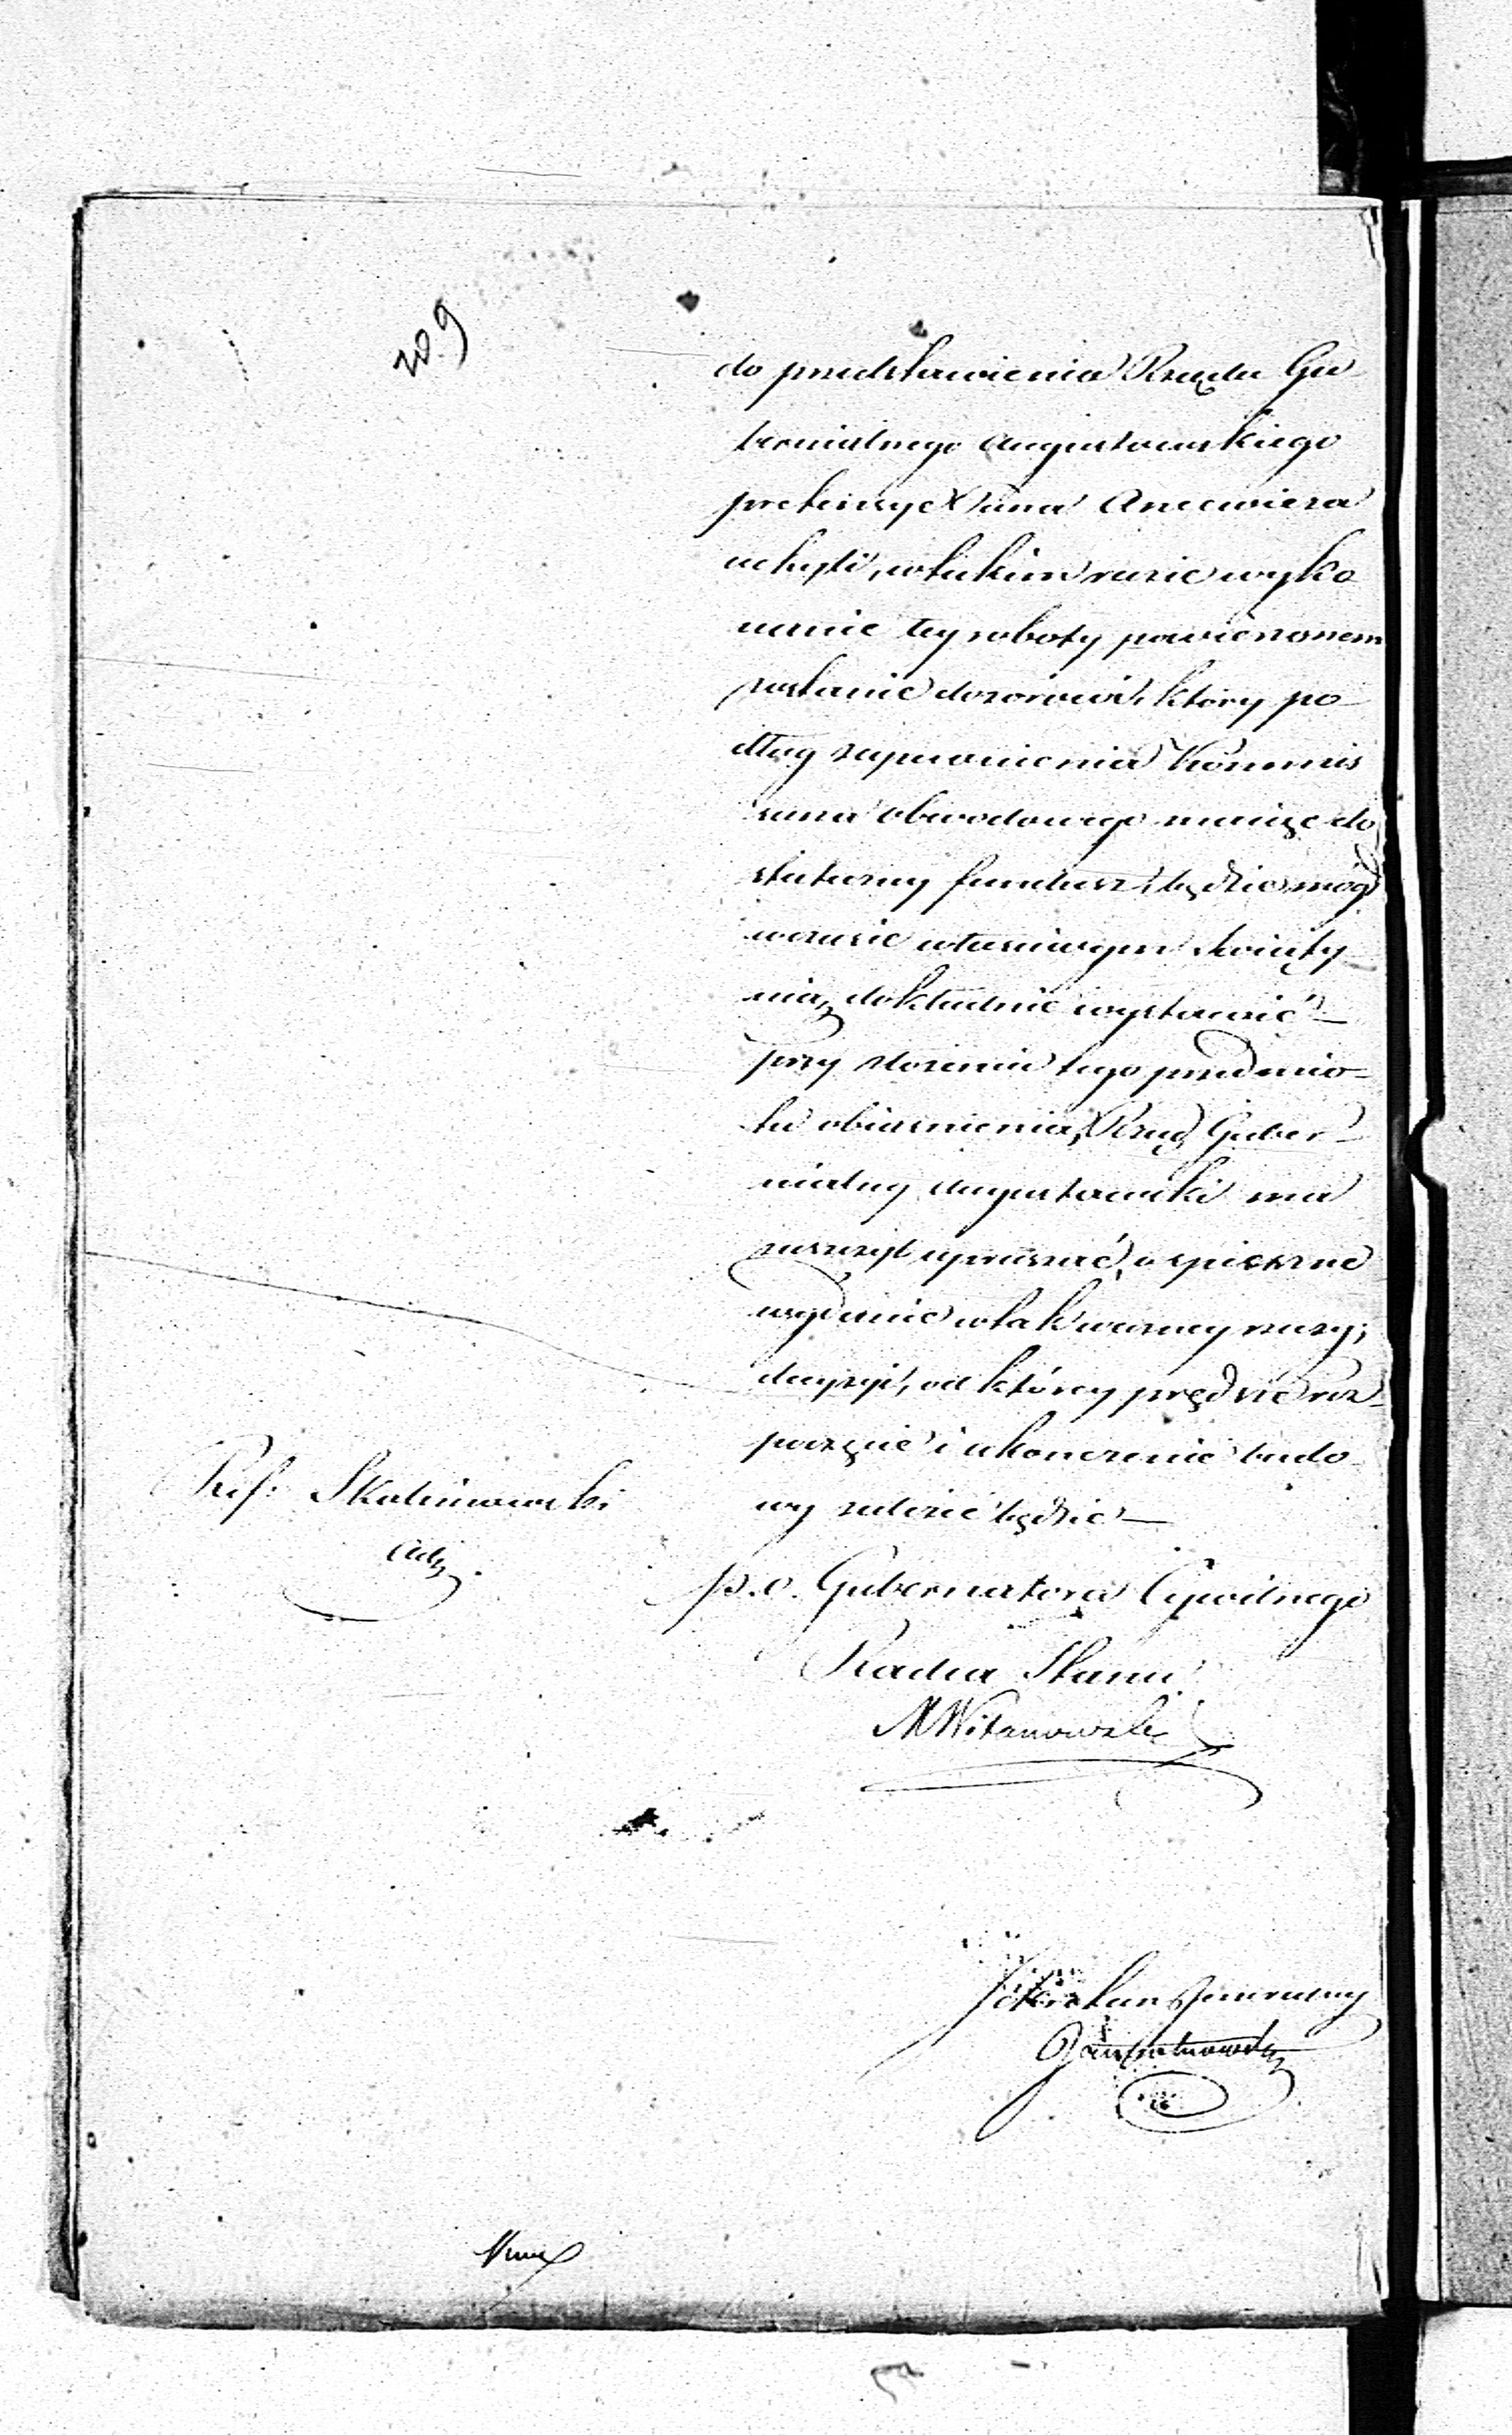 209
do przedstawienia Rządu Gu
bernialnego Augustowskiego
pretensye Pana
uchyli, w takim razie wyko
nanie tey roboty powierzonem
zostanie dozorowi, który po
dług zapewnienia Kommis
sarza obwodowego maiąc do
stateczny fundusz, będzie mógł
w czasie właściwym świąty
nią dokładnie wystawić —
przy złożeniu tego przedmio-
tu obiaśnienia, Rząd Guber-
nialny Augustowski ma
zaszczyt upraszać, o spieszne
wydanie w tak ważney rzeczy,
decyzyi, od którey prędsze roz-
poczęcie i ukończenie budo
wy zależeć będzie —
Ref: Skalinowski
p. o. Gubernatora Cywilnego
Radca Stanu
M Witanowski
Sekretarz Jeneralny